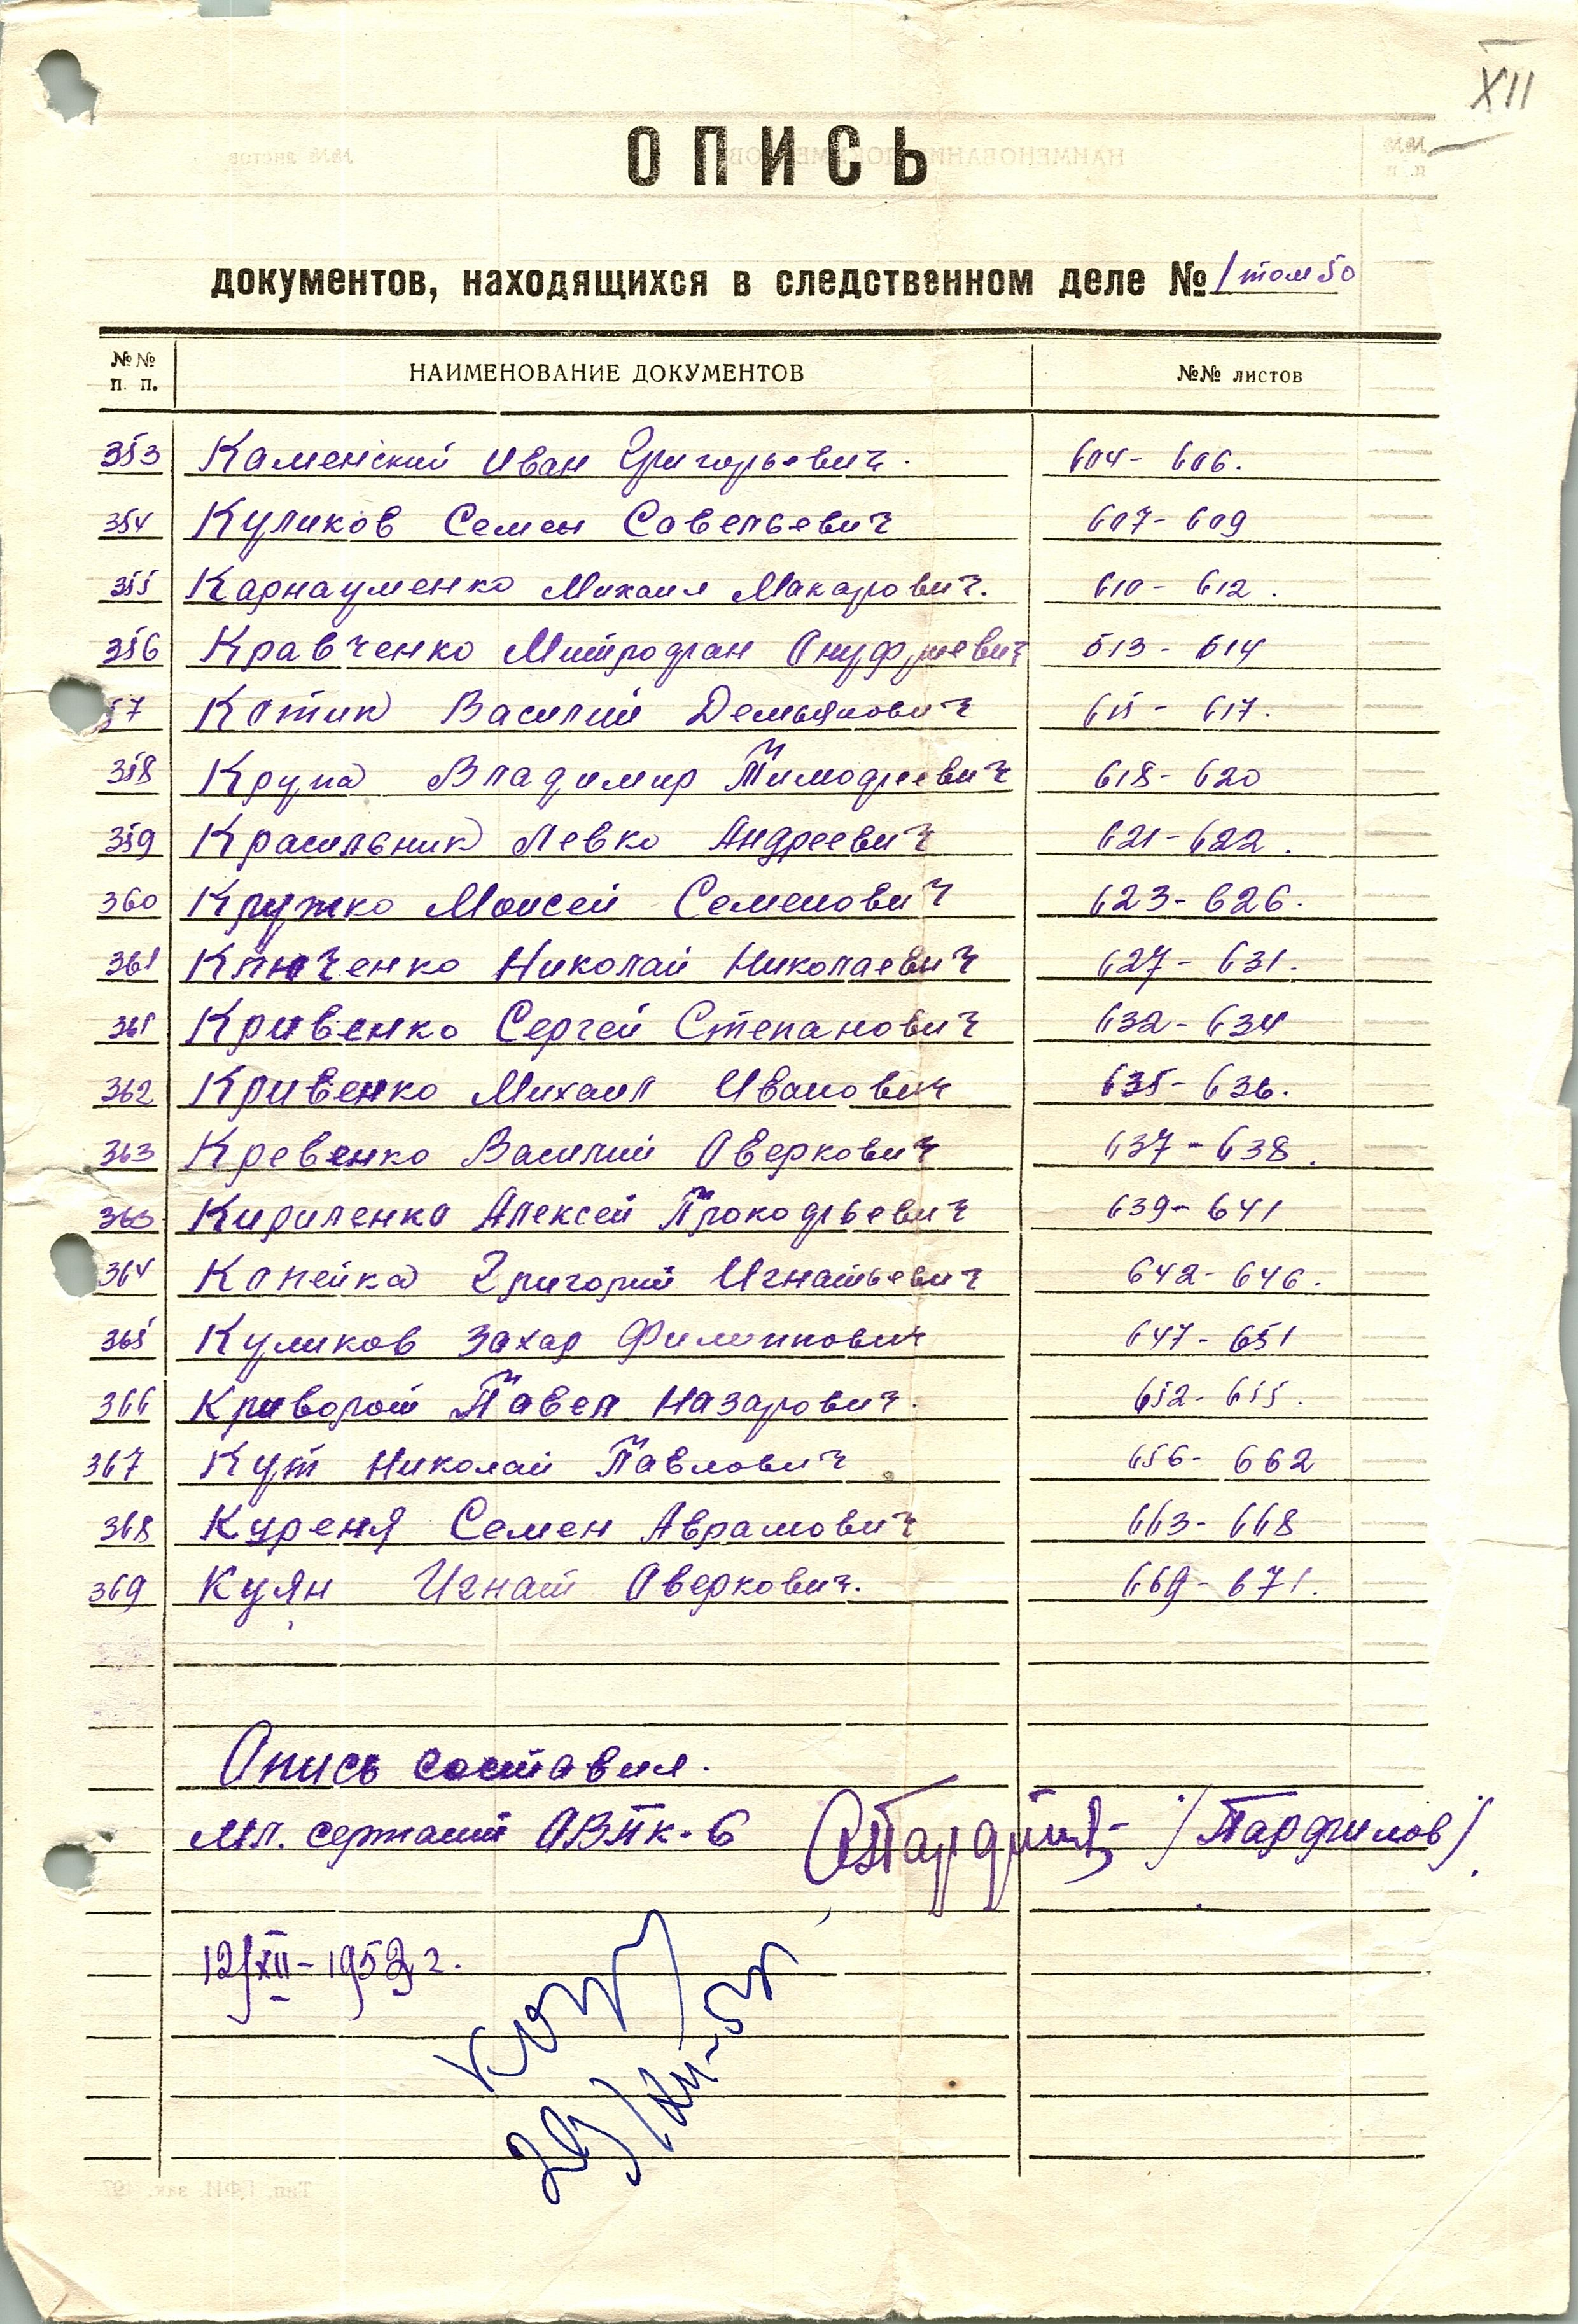 XII
ОПИСЬ
документов, находящихся в следственном деле № 1 том 50
№№ п. п. НАИМЕНОВАНИЕ ДОКУМЕНТОВ №№ листов
353 Каменский Иван Григорьевич. 604- 606.
354 Куликов Семен Савельевич 607- 609
355 Карнауменко Михаил Макарович. 610- 612.
356 Кравченко Митрофан Онуфриевич 613- 614
57 Котик Василий Демьянович 615- 617.
358 Крупа Владимир Тимофеевич 618- 620
359 Красильник Левко Андреевич 621- 622.
360 Кружко Моисей Семенович 623- 626.
361 Ключенко Николай Николаевич 627- 631.
361 Кривенко Сергей Степанович 632- 634
362 Кривенко Михаил Иванович 635- 636.
363 Кревенко Василий Оверкович 637- 638.
363 Кириленко Алексей Прокофьевич 639- 641
364 Копейка Григорий Игнатьевич 642- 646.
365 Куликов Захар Филиппович 647- 651
366 Криворот Павел Назарович. 652- 655.
367 Кут Николай Павлович 656- 662
368 Куреня Семен Аврамович 663- 668
369 Куян Игнат Оверкович. 669- 671.
Опись составил.
мл. сержант ОВПК-6 /Парфилов/
12/XII-1952 г.
29/XII-52